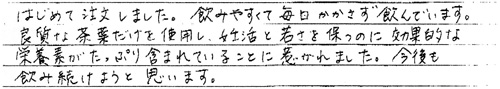 はじめて注文しました。飲みやすくて毎日かかさず飲んでいます。
良質な茶葉だけを使用し、妊活と若さを保つのに効果的な
栄養素がたっぷり含まれていることに惹かれました。今後も
飲み続けようと思います。